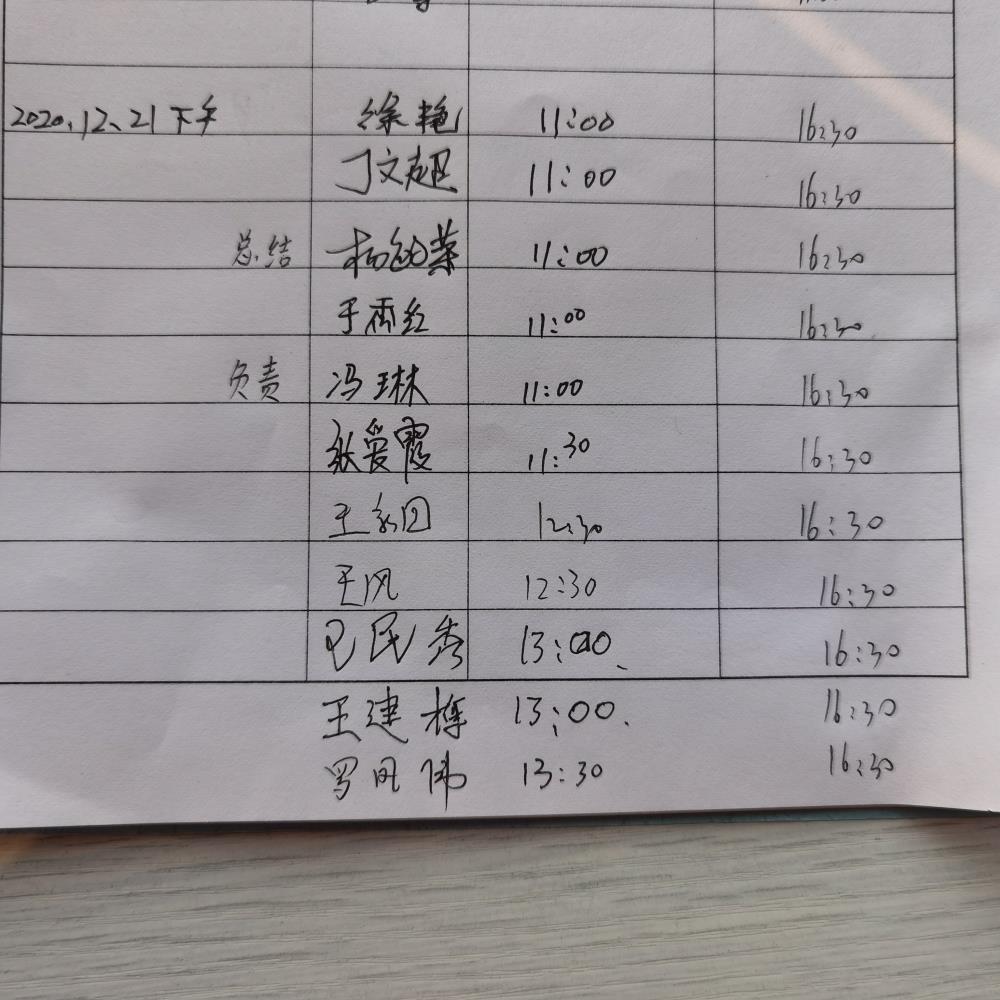 2020.12.21下午 徐艳 11:00 16:30
丁文超 11:00 16:30
总结 11:00 16:30
于雨红 11:00 16:30
负责 冯琳 11:00 16:30
张爱霞 11:30 16:30
王永回 12:30 16:30
王风 12:30 16:30
民秀 13:00 16:30
王建 13:00. 16:30
罗凤伟 13:30 16:30